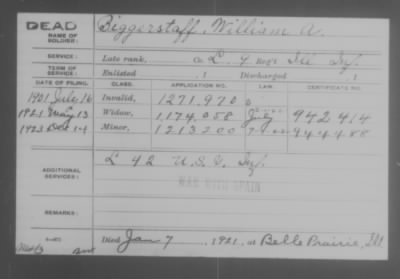 DEAD
NAME OF SOLDIER: Biggerstaff, William A.
SERVICE: Late rank, Co. L, 9 Reg't Ill Inf.
TERM OF SERVICE: Enlisted , 1 Discharged , 1
DATE OF FILING. CLASS. APPLICATION NO. LAW. CERTIFICATE NO.
1901 July 16 Invalid, 1271.970
1921 May 13 Widow, 1,174,058 July 942414
1923 Oct Minor, 1213200 944488
ADDITIONAL SERVICES: L 42 U.S.V. Inf.
WAR WITH SPAIN
REMARKS:
Died Jan 7, 1921, at Belle Prairie, Ill